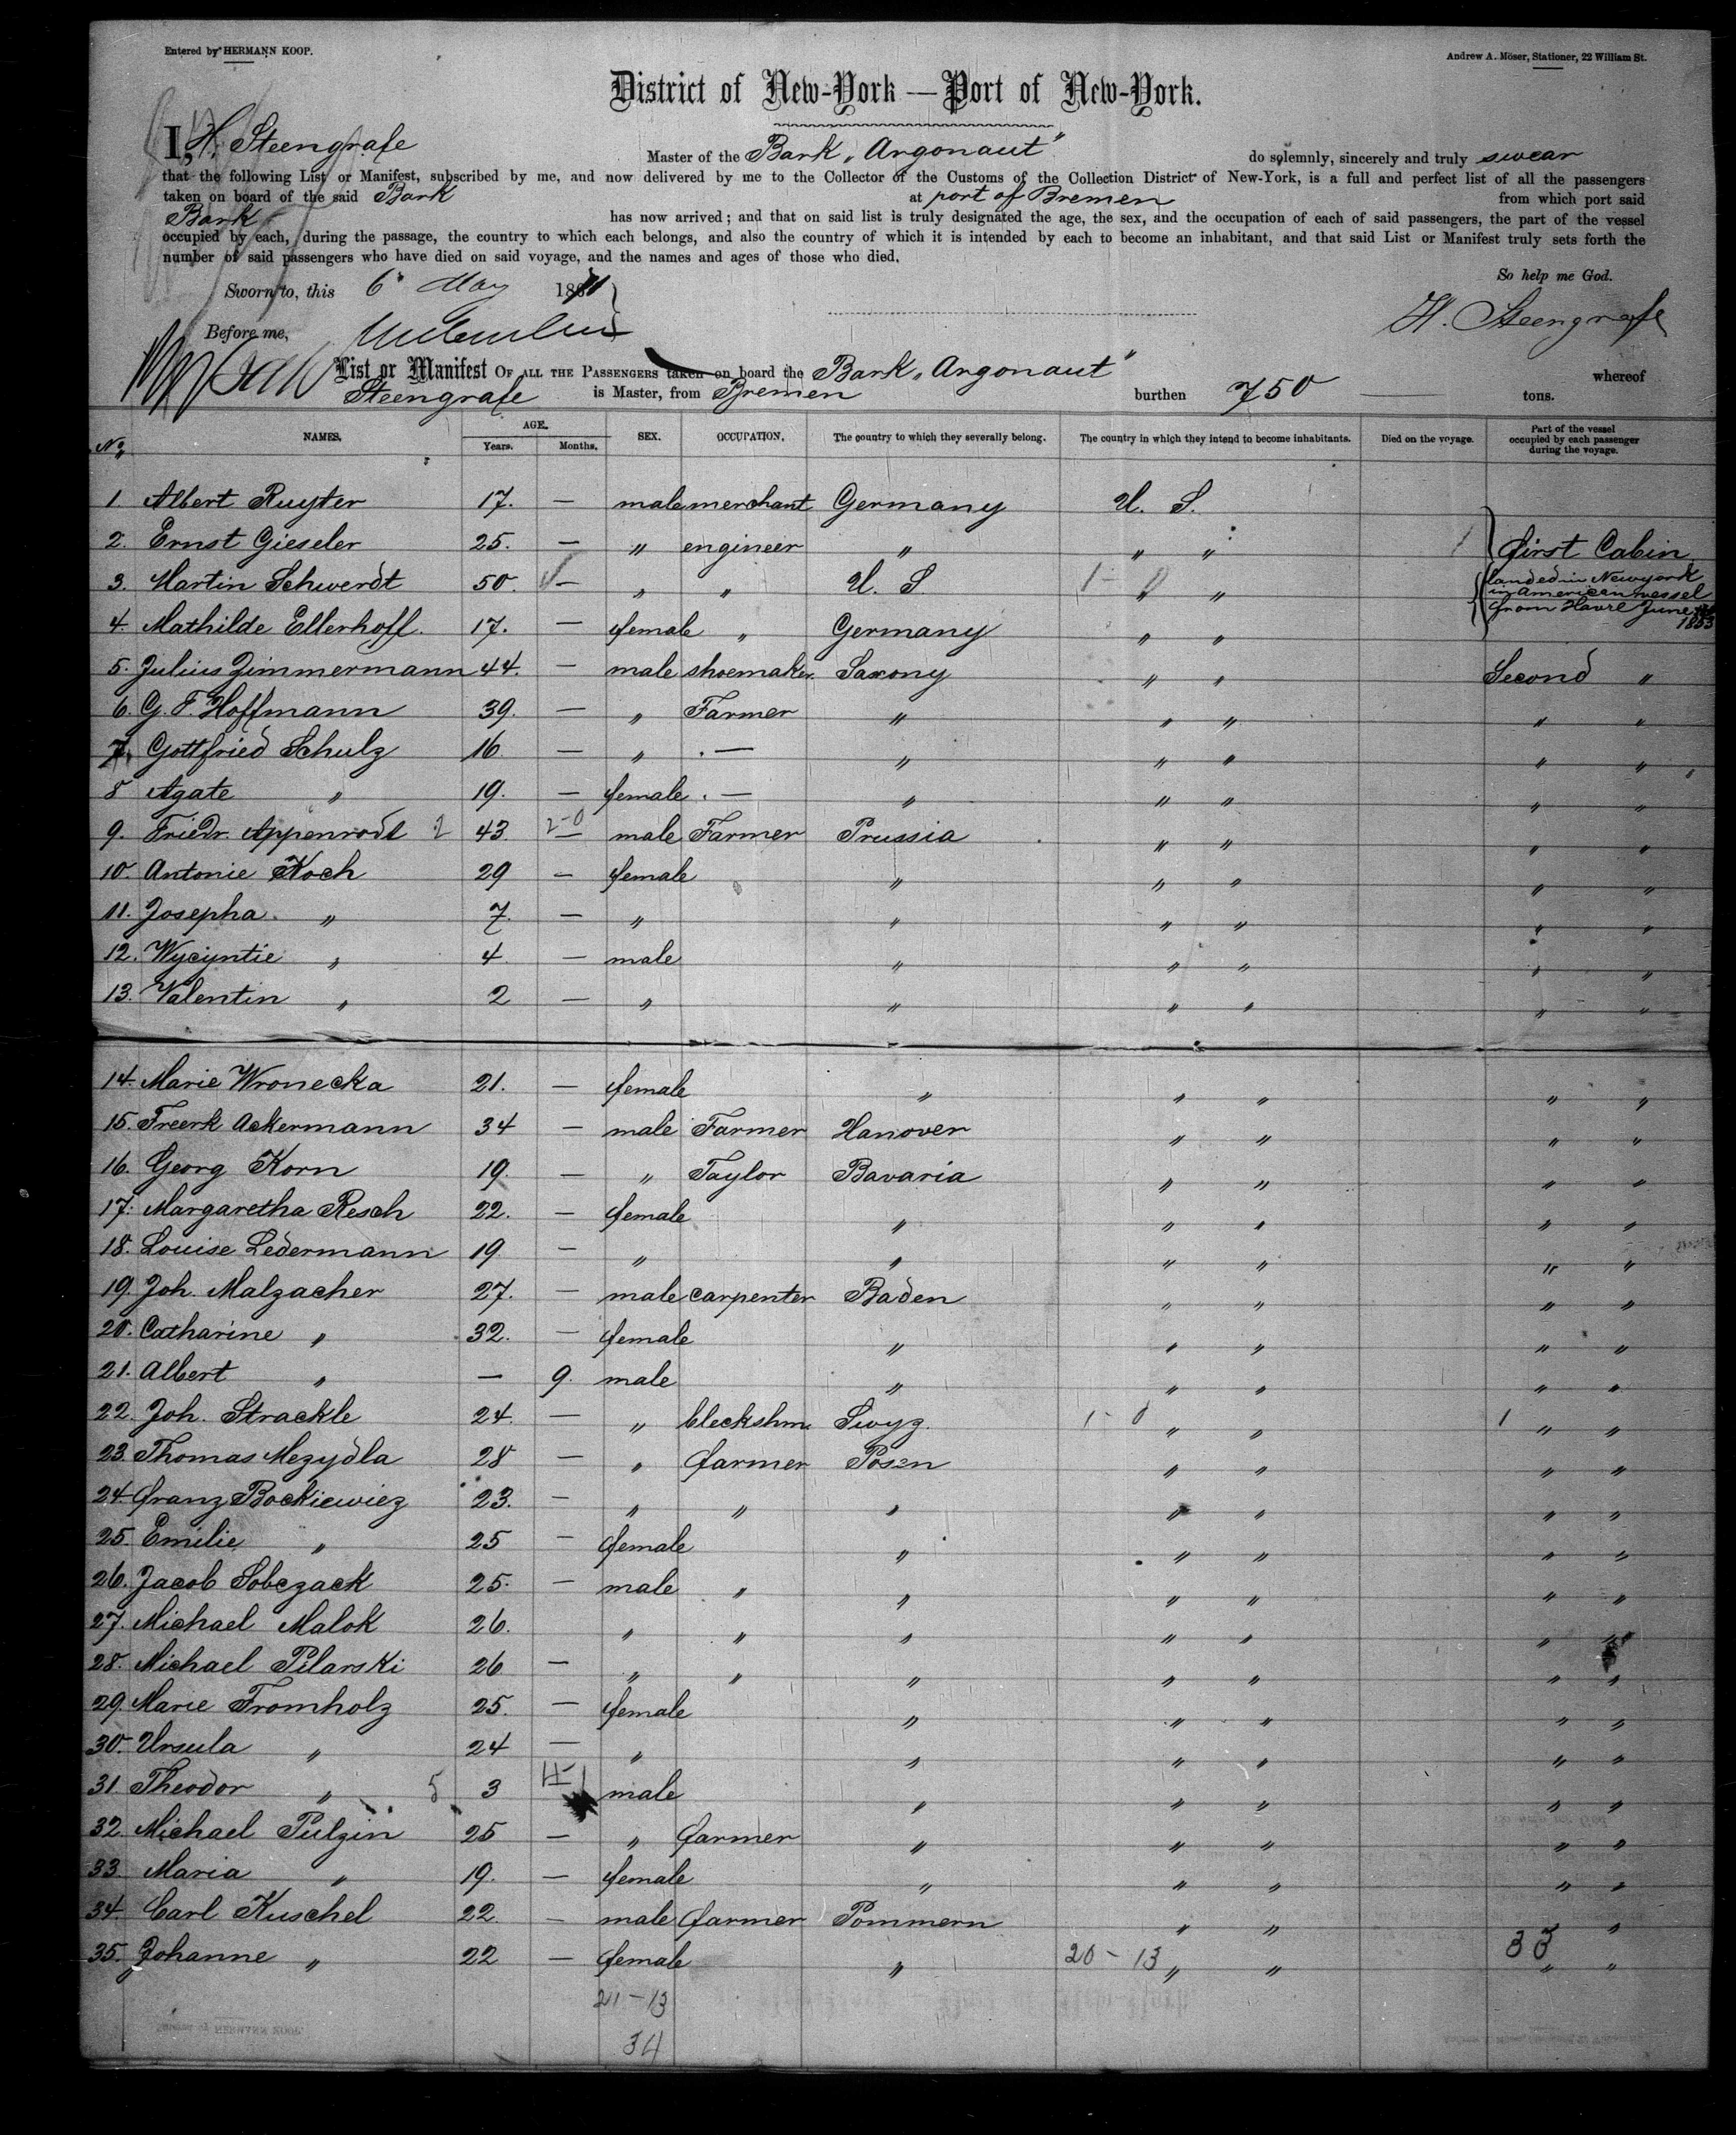 Entered by HERMANN KOOP.
Andrew A. Möser, Stationer, 22 William St.
District of New-York — Port of New-York.
I, H. Steengrafe Master of the Bark „Argonaut" do solemnly, sincerely and truly swear
that the following List or Manifest, subscribed by me, and now delivered by me to the Collector of the Customs of the Collection District of New-York, is a full and perfect list of all the passengers
taken on board of the said Bark at port of Bremen from which port said
Bark has now arrived; and that on said list is truly designated the age, the sex, and the occupation of each of said passengers, the part of the vessel
occupied by each, during the passage, the country to which each belongs, and also the country of which it is intended by each to become an inhabitant, and that said List or Manifest truly sets forth the
number of said passengers who have died on said voyage, and the names and ages of those who died.
So help me God.
Sworn to, this 6 May 1871
H. Steengrafe
Before me,
List or Manifest OF ALL THE PASSENGERS taken on board the Bark „Argonaut" whereof
Steengrafe is Master, from Bremen burthen 750 tons.
No. NAMES. AGE. Years. Months. SEX. OCCUPATION. The country to which they severally belong. The country in which they intend to become inhabitants. Died on the voyage. Part of the vessel occupied by each passenger during the voyage.
1. Albert Ruyter 17. — male merchant Germany U. S.
2. Ernst Gieseler 25. — " engineer " " " First Cabin
3. Martin Schwerdt 50. — " " U. S. 1 - 0 " " landed in Newyork in american vessel from Havre June 1853
4. Mathilde Ellerhoff. 17. — female " Germany " "
5. Julius Zimmermann 44. — male shoemaker. Saxony " " Second "
6. G. F. Hoffmann 39. — " Farmer " " " " "
7. Gottfried Schulz 16. — " — " " " " "
8 Agate " 19. — female — " " " " "
9. Friedr. Appenrodt 2 43 2-0 — male Farmer Prussia " " " "
10. Antonie Koch 29 — female " " " " "
11. Josepha " 7. — " " " " " "
12. Wycyntie " 4 — male " " " " "
13. Valentin " 2 — " " " " " "
14. Marie Wronecka 21. — female " " " " "
15. Freerk Ackermann 34 — male Farmer Hanover " " " "
16. Georg Korn 19. — " Taylor Bavaria " " " "
17. Margaretha Resch 22. — female " " " " "
18. Louise Ledermann 19 — " " " " " "
19. Joh. Malzacher 27. — male carpenter Baden " " " "
20. Catharine " 32. — female " " " " "
21. Albert " — 9. male " " " " "
22. Joh. Strackle 24. — " bleckshm. Swyz. 1 - 0 " " 1 " "
23. Thomas Mezydla 28 — " farmer Posen " " " "
24. Franz Bockiewiez 23. — " " " " " " "
25. Emilie " 25 — female " " " " "
26. Jacob Sobczack 25. — male " " " " " "
27. Michael Malok 26. " " " " " " "
28. Michael Pilarski 26 — " " " " " " "
29. Marie Fromholz 25. — female " " " " "
30. Ursula " 24 — " " " " " "
31. Theodor " 5 3 4-1 male " " " " "
32. Michael Pulzin 25 — " farmer " " " " "
33. Maria " 19. — female " " " " "
34. Carl Kuschel 22 — male farmer Pommern " " "
35. Johanne " 22 — female " 20 - 13 " " 33 " "
21 - 13
34